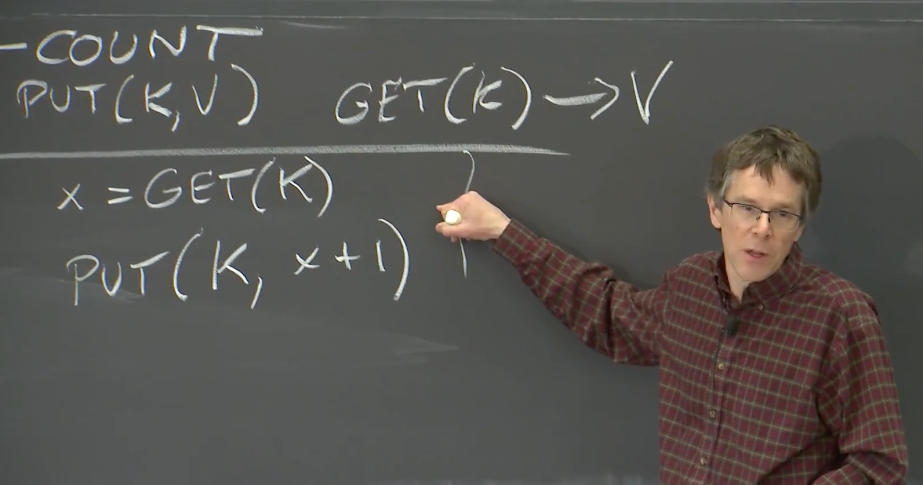 -COUNT
PUT(K,V) GET(K)→V
x=GET(K)
PUT(K, x+1)